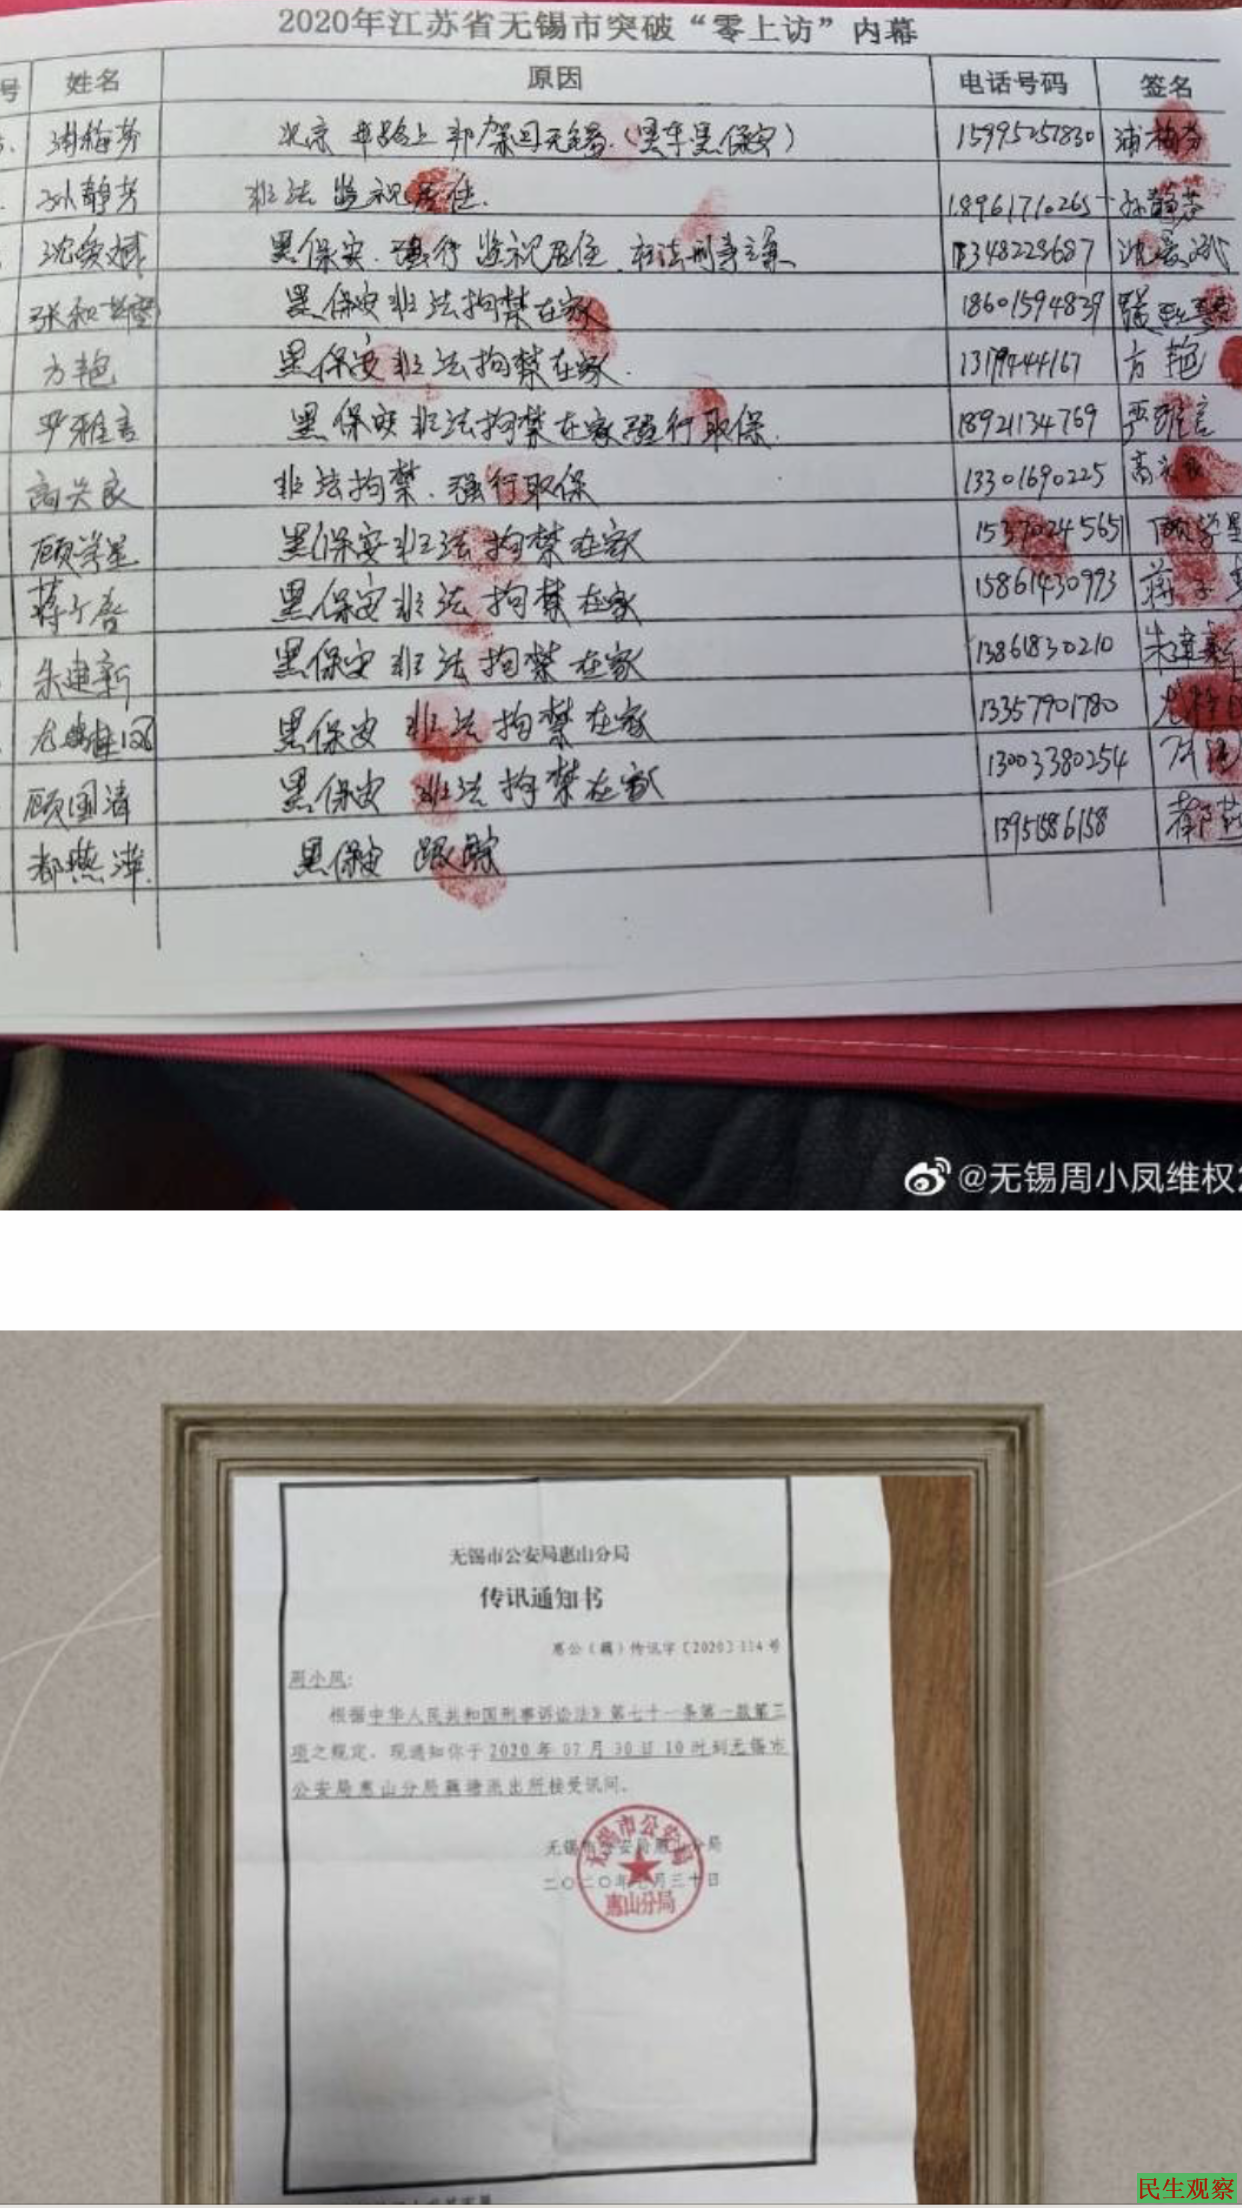 2020年江苏省无锡市突破“零上访”内幕
号 姓名 原因 电话号码 签名
浦梅芬 北京 马路上 绑架回无锡.(黑车黑保安) 15995257830 浦梅芬
孙静芳 非法 监视居住. 18961710265 孙静芳
沈爱斌 黑保安.强行 监视居住.非法刑事 13348228687 沈爱斌
黑保安非法拘禁在家 18601594839
方艳 黑保安非法拘禁在家. 方 艳
严雅言 黑保安 非法拘禁在家强行取保. 18921134769 严雅言
高兴良 非法拘禁.强行取保 13301690225 高
顾学星 黑保安非法拘禁在家 15370245651 顾学星
蒋 黑保安非法拘禁在家 15861430993 蒋
朱建新 黑保安非法拘禁在家 13861830210 朱建新
尤 黑保安 非法拘禁在家 13357901780 尤
顾国清 黑保安 非法拘禁在家 13003380254
都燕萍. 黑保安 跟踪 都燕
@无锡周小凤维权
无锡市公安局惠山分局
传讯通知书
惠公（藕）传讯字〔2020〕114号
周小凤:
根据中华人民共和国刑事诉讼法》第七十一条第一款第三
项之规定，现通知你于 2020 年 07 月 30 日 10 时到无锡市
公安局惠山分局藕塘派出所接受讯问。
无锡市公安局惠山分局
二〇二〇年七月三十日
无锡市公安局
惠山分局
民生观察